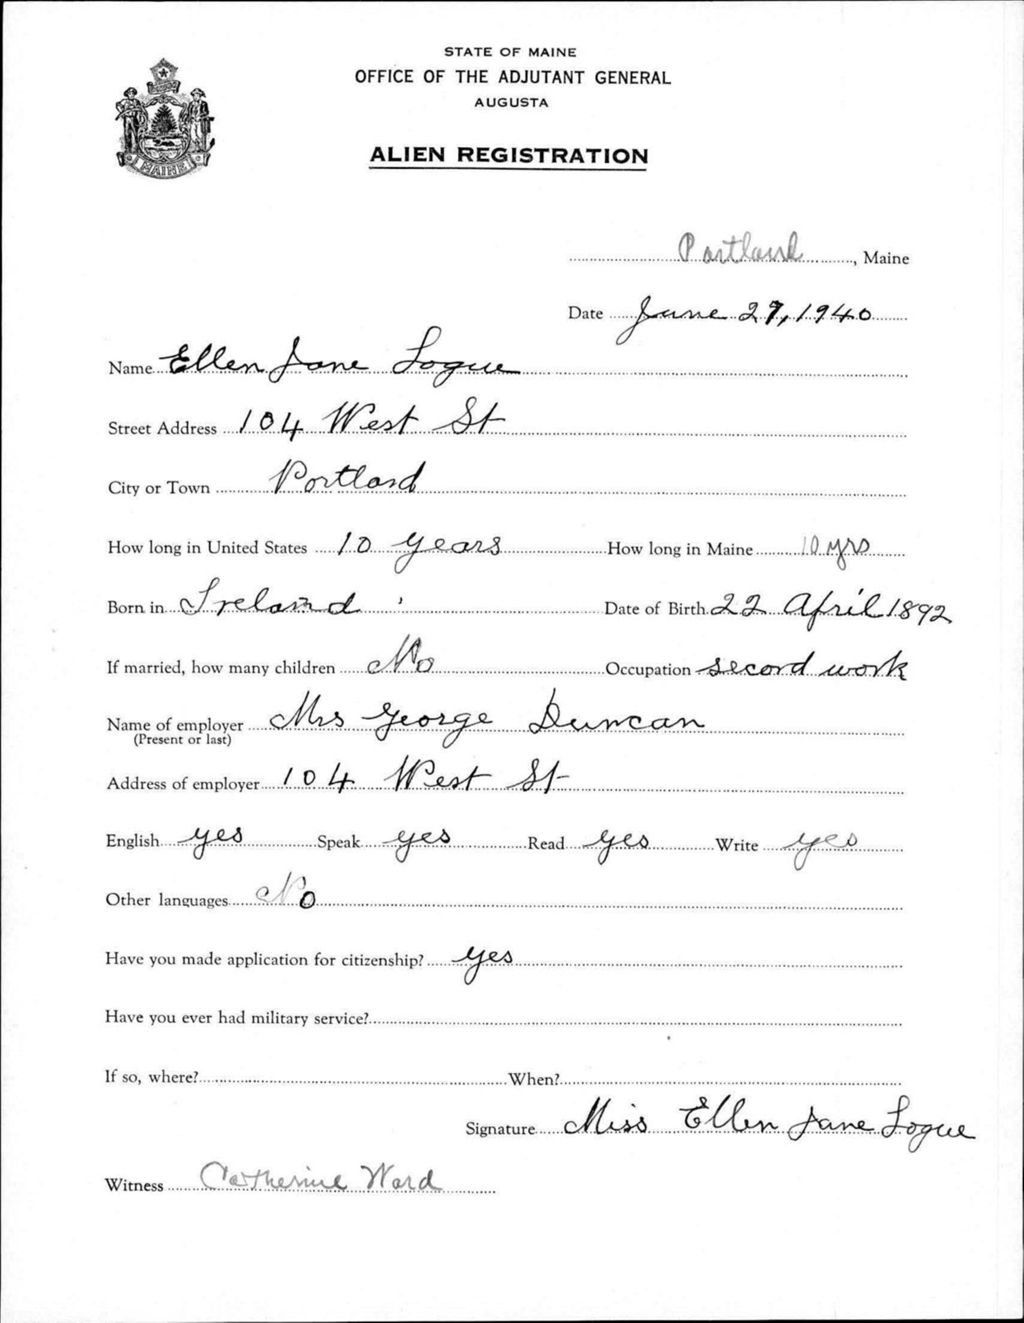 STATE OF MAINE
OFFICE OF THE ADJUTANT GENERAL
AUGUSTA
ALIEN REGISTRATION
MAINE
Portland, Maine
Date June 27, 1940
Name Ellen Jane Logue
Street Address 104 West St
City or Town Portland
How long in United States 10 years How long in Maine 10 yrs
Born in Ireland Date of Birth 22 April 1892
If married, how many children No Occupation second work
Name of employer Mrs George Duncan
(Present or last)
Address of employer 104 West St
English yes Speak yes Read yes Write yes
Other languages No
Have you made application for citizenship? yes
Have you ever had military service?
If so, where? When?
Signature Miss Ellen Jane Logue
Witness Catherine Ward